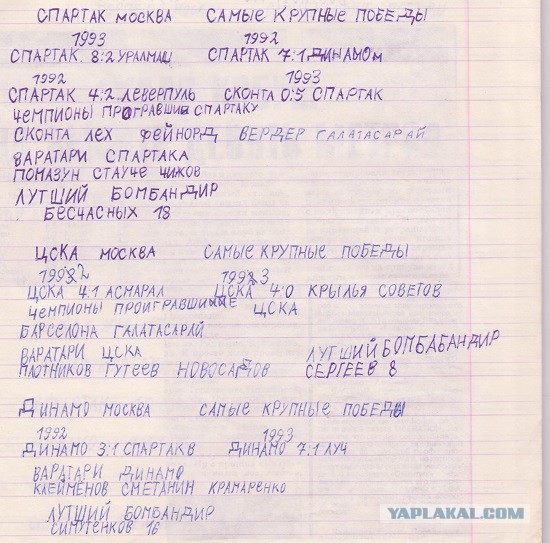 СПАРТАК МОСКВА САМЫЕ КРУПНЫЕ ПОБЕДЫ
1993 1992
СПАРТАК 8:2 УРАЛМАЦ СПАРТАК 7:1 ДИНАМО М
1992 1993
СПАРТАК 4:2 ЛЕВЕРПУЛЬ СКОНТА 0:5 СПАРТАК
ЧЕМПИОНЫ ПРОГРАВШИ СПАРТАКУ
СКОНТА ЛЕХ ФЕЙНОРД ВЕРДЕР ГАЛАТАСАРАЙ
ВАРАТАРИ СПАРТАКА
ПОМАЗУН СТАУЧЕ ЧИЖОВ
ЛУТШИЙ БОМБАНДИР
БЕСЧАСНЫХ 18
ЦСКА МОСКВА САМЫЕ КРУПНЫЕ ПОБЕДЫ
1992 1993
ЦСКА 4:1 АСМАРАЛ ЦСКА 4:0 КРЫЛЬЯ СОВЕТОВ
ЧЕМПИОНЫ ПРОИГРАВШИЕ ЦСКА
БАРСЕЛОНА ГАЛАТАСАРАЙ
ВАРАТАРИ ЦСКА ЛУТШИЙ БОМБАБАНДИР
ПЛОТНИКОВ ГУТЕЕВ НОВОСАДОВ СЕРГЕЕВ 8
ДИНАМО МОСКВА САМЫЕ КРУПНЫЕ ПОБЕДЫ
1992 1993
ДИНАМО 3:1 СПАРТАК В ДИНАМО 7:1 ЛУЧ
ВАРАТАРИ ДИНАМО
КЛЕЙМЕНОВ СМЕТАНИН КРАМАРЕНКО
ЛУТШИЙ БОМБАНДИР
СИМУТЕНКОВ 16
YAPLAKAL.COM